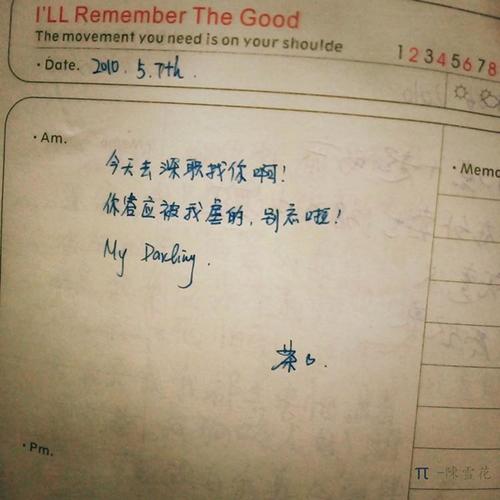 I'LL Remember The Good
The movement you need is on your shoulde
1 2 3 4 5 6 7 8
· Date. 2010. 5. 7th.
· Am.
· Memo
今天去深职找你啊!
你答应被我虐的,别忘啦!
My Darling.
· Pm.
π -陳雪花